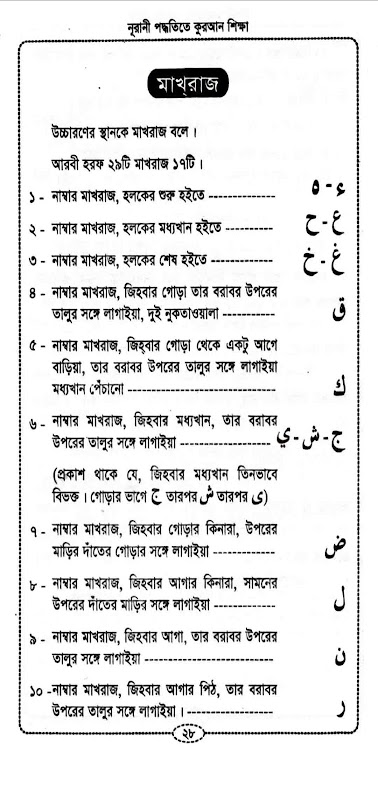 নূরানী পদ্ধতিতে কুরআন শিক্ষা
মাখ্‌রাজ
উচ্চারণের স্থানকে মাখরাজ বলে ।
আরবী হরফ ২৯টি মাখরাজ ১৭টি ।
১ - নাম্বার মাখরাজ, হলকের শুরু হইতে -------------- ء - ه
২ - নাম্বার মাখরাজ, হলকের মধ্যখান হইতে ---------- ع - ح
৩ - নাম্বার মাখরাজ, হলকের শেষ হইতে -------------- غ - خ
৪ - নাম্বার মাখরাজ, জিহবার গোড়া তার বরাবর উপরের
তালুর সঙ্গে লাগাইয়া, দুই নুকতাওয়ালা ----------- ق
৫ - নাম্বার মাখরাজ, জিহ্বার গোড়া থেকে একটু আগে
বাড়িয়া, তার বরাবর উপরের তালুর সঙ্গে লাগাইয়া
মধ্যখান পেঁচানো -------------------------------- ك
৬ - নাম্বার মাখরাজ, জিহবার মধ্যখান, তার বরাবর
উপরের তালুর সঙ্গে লাগাইয়া -------------------- ج - ش - ي
(প্রকাশ থাকে যে, জিহবার মধ্যখান তিনভাবে
বিভক্ত । গোড়ার ভাগে ج তারপর ش তারপর ى)
৭ - নাম্বার মাখরাজ, জিহবার গোড়ার কিনারা, উপরের
মাড়ির দাঁতের গোড়ার সঙ্গে লাগাইয়া ------------- ض
৮ - নাম্বার মাখরাজ, জিহবার আগার কিনারা, সামনের
উপরের দাঁতের মাড়ির সঙ্গে লাগাইয়া ------------- ل
৯ - নাম্বার মাখরাজ, জিহবার আগা, তার বরাবর উপরের
তালুর সঙ্গে লাগাইয়া --------------------------- ن
১০ - নাম্বার মাখরাজ, জিহবার আগার পিঠ, তার বরাবর
উপরের তালুর সঙ্গে লাগাইয়া । ------------------- ر
২৮